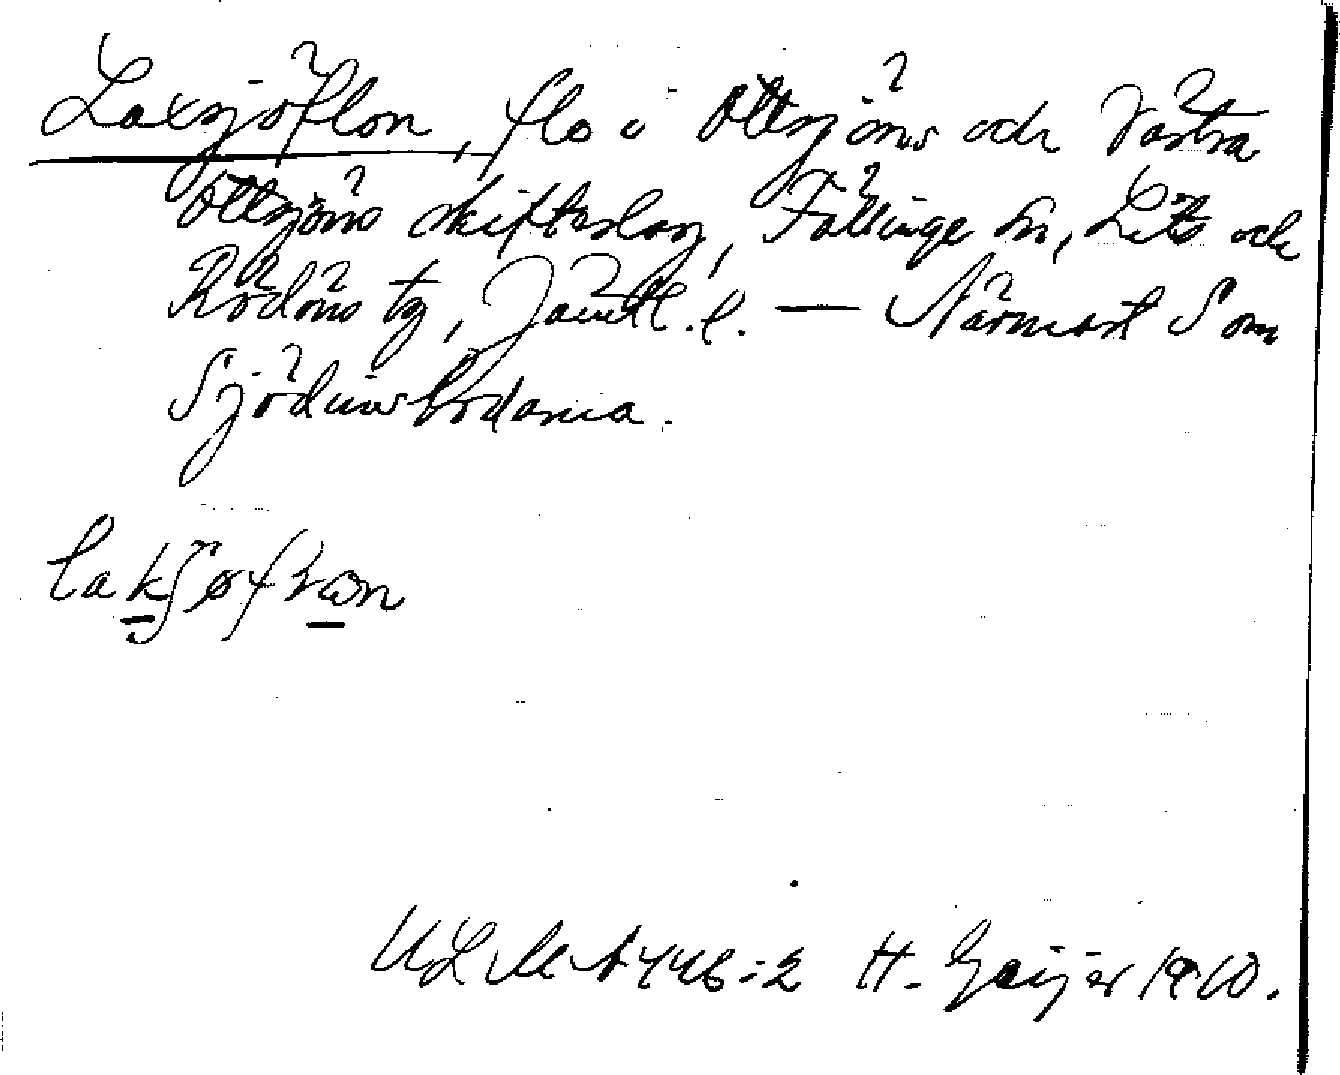 Laxsjöflon, flo i Ottsjöns och Västra
Ottsjöns skifteslag, Föllinge sn, Lits och
Rödöns tg, Jämtl. l. — Närmast som
Sjödinsbodarna.
H. Geijer 1910.